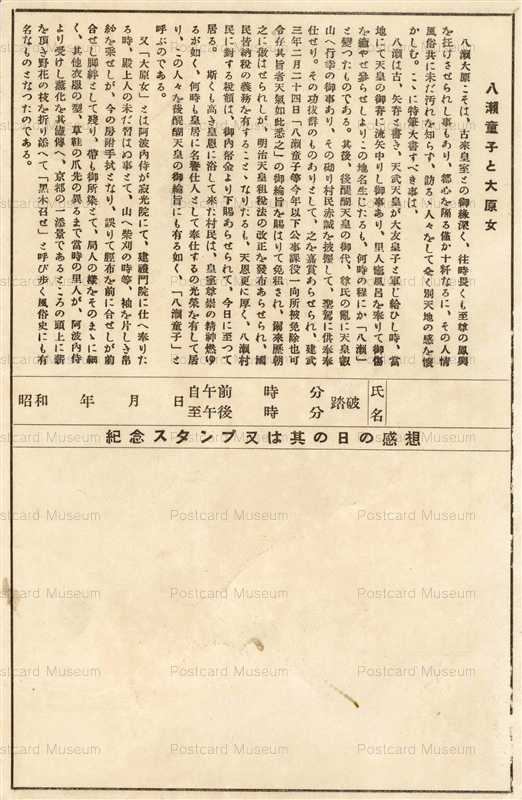 八瀬童子と大原女
八瀬大原こそは、古來皇室との御緣深く、往時畏くも至尊の鳳輿
を抂げさせられし事もあり、都心を隔る僅か十粁なるに、その人情
風俗共に未だ汚れを知らず、訪るゝ人々をして全く別天地の感を懷
かしむ。こゝに特筆大書すべき事は、
八瀬は古、矢脊と書き、天武天皇が大友皇子と軍し給ひし時、當
地にて天皇の御脊に流矢中りし御事あり、里人竈風呂を奉りて御傷
を癒やせ參らせしよりこの地名生じたるも、何時の程にか「八瀬」
と變つたものである。其後、後醍醐天皇の御代、尊氏の亂に天皇叡
山へ行幸の御事あり、その砌り村民赤誠を披攊して、聖駕に供奉奉
仕せり。その功拔群のものありとして、之を嘉賞あらせられ、建武
三年二月二十四日「八瀬童子等今年以下公事課役一向所被免除也可
令存其旨者天氣如此悉之」の御綸旨を賜はりて免租され、爾來歷朝
之に倣はせられしが、明治天皇租稅法の改正を發布あらせられ、國
民皆納稅の義務を有することゝなりたるも、天恩更に厚く、八瀬村
民に對する稅額は、御內帑金より下賜あらせられて、今日に至つて
居る。斯くも高き皇恩に浴して來た村民は、皇室尊崇の精神燃ゆ
るが如く、何時も皇居に名譽仕人として奉仕するの光榮を有して居
り、この人々を後醍醐天皇の御綸旨にも有る如く、「八瀬童子」と
呼ぶのである。
又「大原女」とは阿波內侍が寂光院にて、建禮門院に仕へ奉りた
る時、殿上人の未だ習はぬ事とて、山へ柴刈の時等、袖を片しき帛
紗を乘せしが、今の房附手拭となり、誤りて脛布を前に合せしが前
合せし脚絆として殘り、帶も御所染とて、局人の樣をそのまゝに細
く、其他衣服の型、草鞋の爪先の異るまで當時の里人が、阿波內侍
より受けし薰化を其儘傳へ、京都の一添景であるところの頭上に薪
を頂き野花の枝を折り添へて「黑木召せ」と呼び步く風俗史にも有
名なものとなつたのである。
昭和　年　月　日　自午前　時　分　至午後　時　分　踏破　氏名
紀念スタンプ又は其の日の感想
Postcard Museum